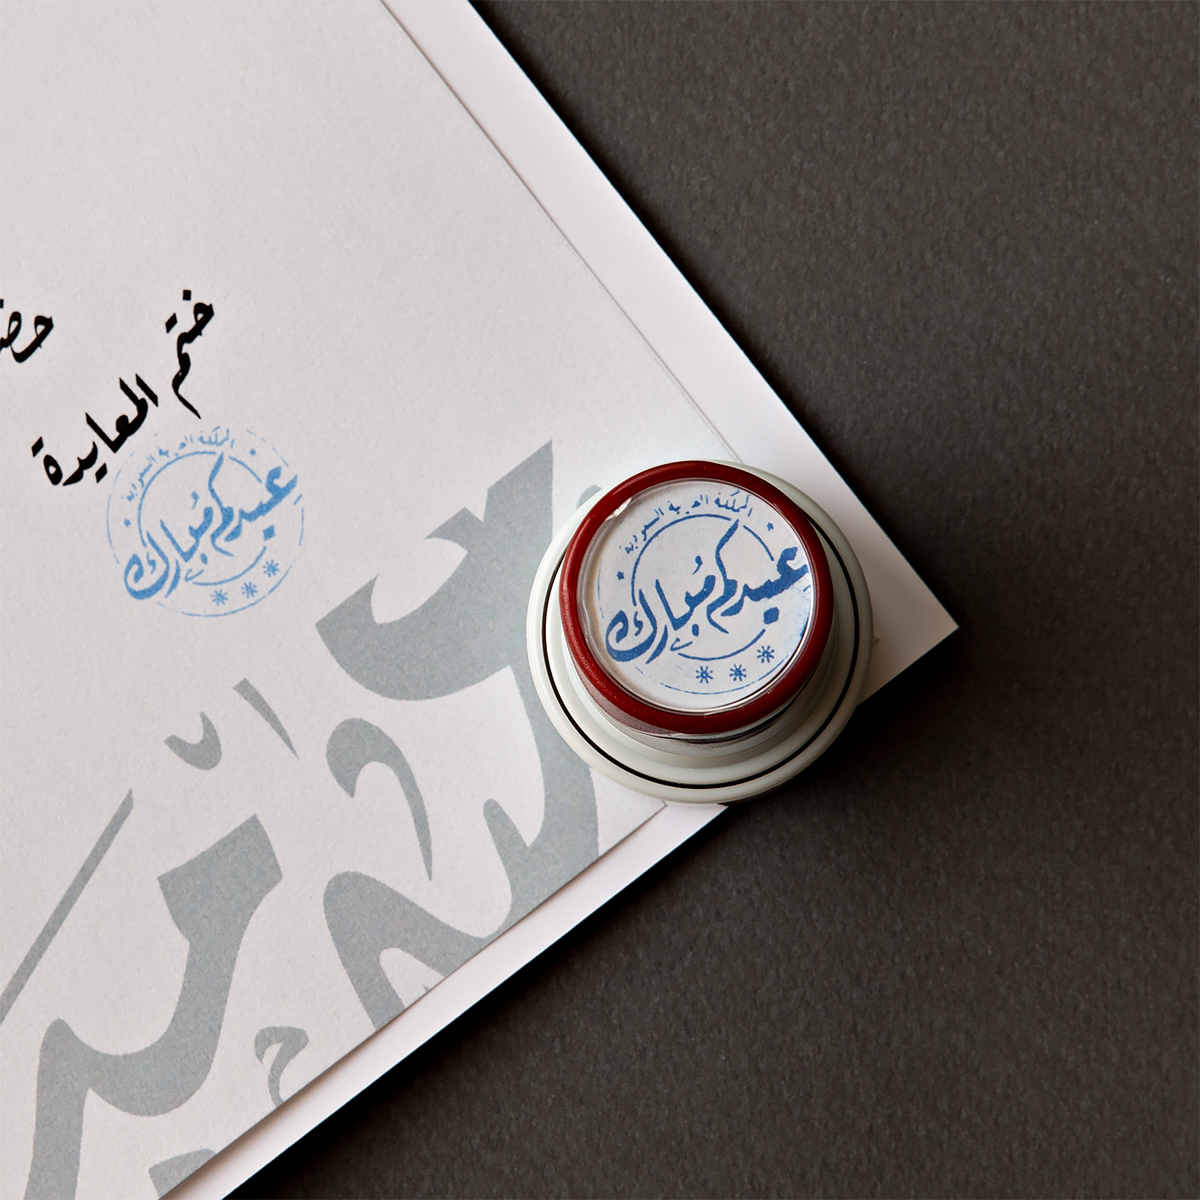 ختم المعايدة
المملكة العربية السعودية
عيدكم مبارك
المملكة العربية السعودية
عيدكم مُبارك